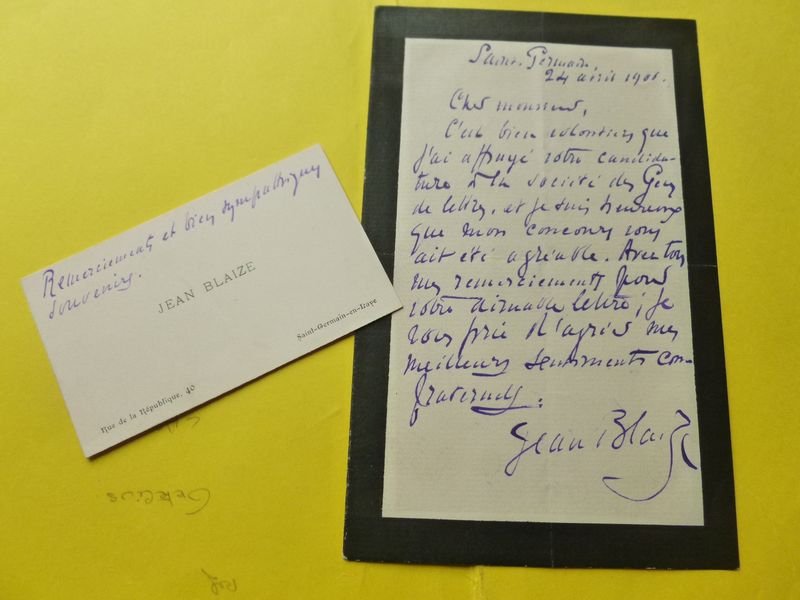 Remerciements et bien sympathiques
souvenirs.
JEAN BLAIZE
Saint-Germain-en-Laye
Rue de la République, 40
Saint-Germain,
24 avril 1901.
Cher monsieur,
C'est bien volontiers que
j'ai appuyé votre candida-
ture à la société des Gens
de lettres, et je suis heureux
que mon concours vous
ait été agréable. Avec tous
mes remerciements pour
votre aimable lettre, je
vous prie d'agréer mes
meilleurs sentiments con-
fraternels.
Jean Blaize